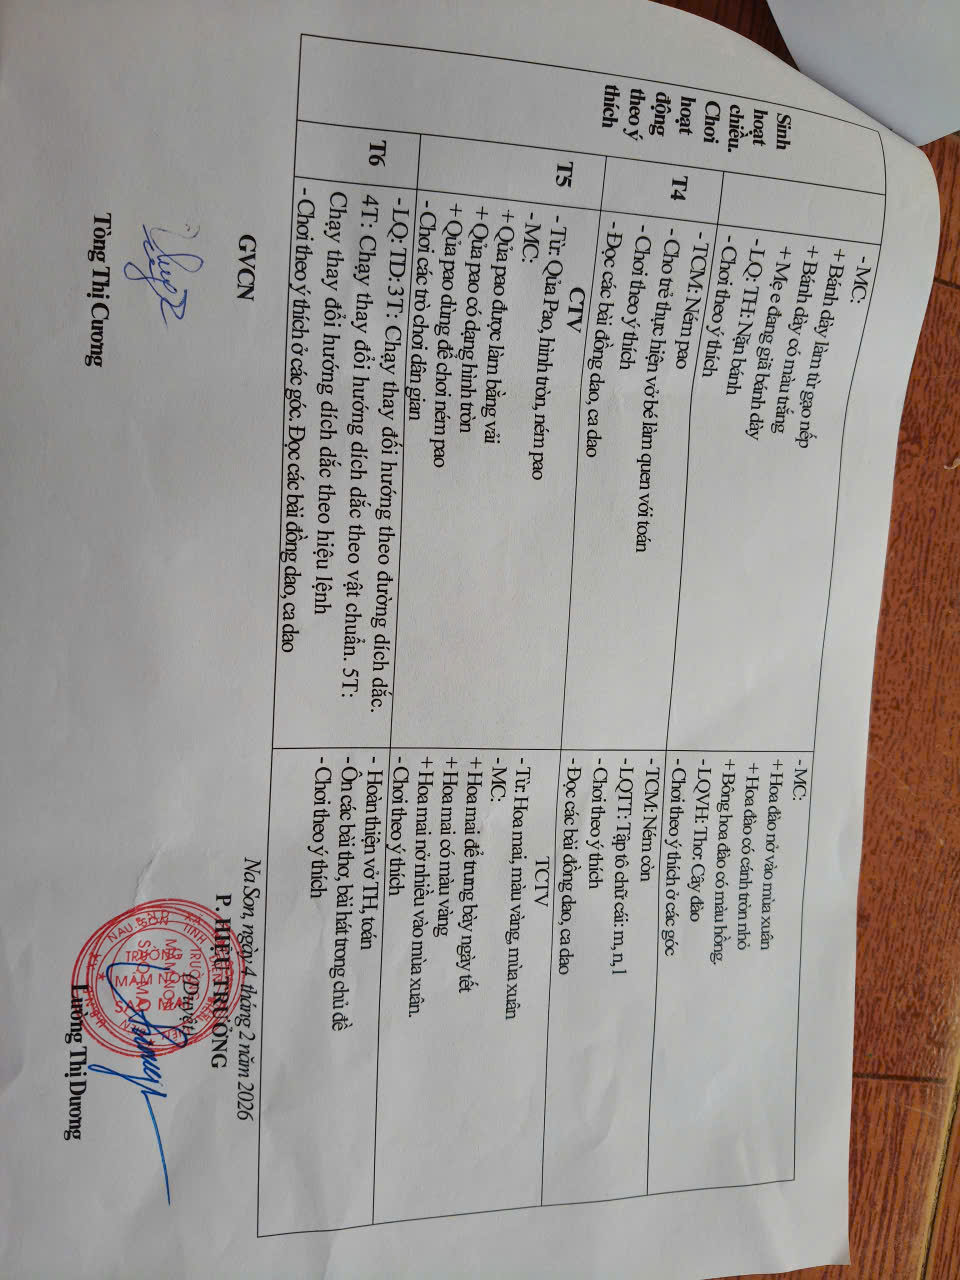 - MC:
+ Bánh dày làm từ gạo nếp
+ Bánh dày có màu trắng
+ Mẹ e đang giã bánh dày
- LQ: TH: Nặn bánh
- Chơi theo ý thích
- MC:
+ Hoa đào nở vào mùa xuân
+ Hoa đào có cánh tròn nhỏ
+ Bông hoa đào có màu hồng.
- LQVH: Thơ: Cây đào
- Chơi theo ý thích ở các góc
Sinh
hoạt
chiều.
Chơi
hoạt
động
theo ý
thích
T4
- TCM: Ném pao
- Cho trẻ thực hiện vở bé làm quen với toán
- Chơi theo ý thích
- Đọc các bài đồng dao, ca dao
- TCM: Ném còn
- LQTT: Tập tô chữ cái: m, n, l
- Chơi theo ý thích
- Đọc các bài đồng dao, ca dao
T5
CTV
- Từ: Qủa Pao, hình tròn, ném pao
- MC:
+ Qủa pao được làm bằng vải
+ Qủa pao có dạng hình tròn
+ Qủa pao dùng để chơi ném pao
- Chơi các trò chơi dân gian
TCTV
- Từ: Hoa mai, màu vàng, mùa xuân
- MC:
+ Hoa mai để trưng bày ngày tết
+ Hoa mai có màu vàng
+ Hoa mai nở nhiều vào mùa xuân.
- Chơi theo ý thích
T6
- LQ: TD:3T: Chạy thay đổi hướng theo đường dích dắc.
4T: Chạy thay đổi hướng dích dắc theo vật chuẩn. 5T:
Chạy thay đổi hướng dích dắc theo hiệu lệnh
- Chơi theo ý thích ở các góc. Đọc các bài đồng dao, ca dao
- Hoàn thiện vở TH, toán
- Ôn các bài thơ, bài hát trong chủ đề
- Chơi theo ý thích
Na Son, ngày 4 tháng 2 năm 2026
GVCN
P. HIỆU TRƯỞNG
(Duyệt)
TRƯỜNG
MẦM NON
SAO MAI
Tòng Thị Cương
Lường Thị Dương